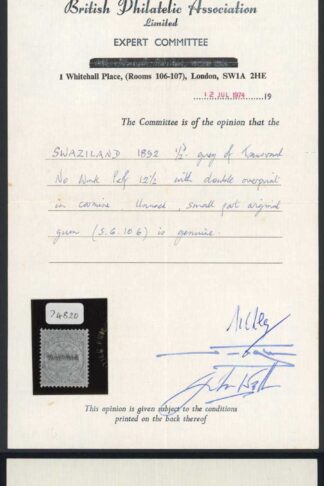 British Philatelic Association
Limited
EXPERT COMMITTEE
1 Whitehall Place, (Rooms 106-107), London, SW1A 2HE
12 JUL 1974 19
The Committee is of the opinion that the
SWAZILAND 1892 ½d grey of Transvaal
No Wmk Perf 12½ with double overprint
in carmine Unused, small part original
gum (S.G. 10b) is genuine.
74820
This opinion is given subject to the conditions
printed on the back thereof